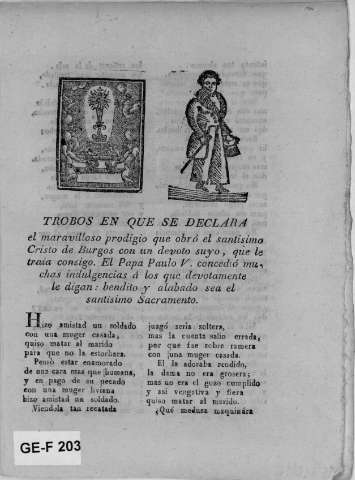 TROBOS EN QUE SE DECLARA
el maravilloso prodigio que obró el santisimo
Cristo de Burgos con un devoto suyo, que le
traia consigo. El Papa Paulo V. concedió mu-
chas indulgencias á los que devotamente
le digan: bendito y alabado sea el
santisimo Sacramento.
Hizo amistad un soldado
con una muger casada,
quiso matar al marido
para que no la estorbara.
Pensó estar enamorado
de una cara mas que humana,
y en pago de su pecado
con una muger liviana
hizo amistad un soldado.
Viendola tan recatada
juzgó seria soltera,
mas la cuenta salio errada,
por que fue sobre ramera
con una muger casada.
El la adoraba rendido,
la dama no era grosera;
mas no era el gozo cumplido
y asi vengativa y fiera
quiso matar al marido.
¿Qué medusa maquinára
GE-F 203